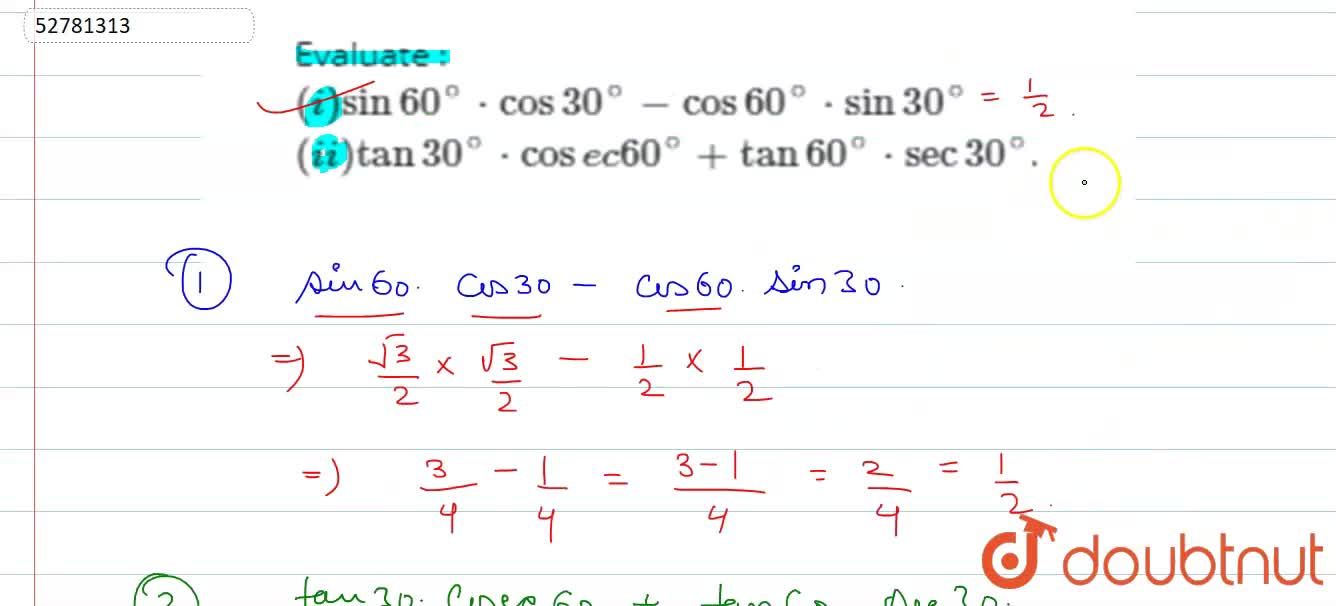 52781313
Evaluate :
(i)sin 60° · cos 30° − cos 60° · sin 30° = 1/2 .
(ii)tan 30° · cos ec60° + tan 60° · sec 30°.
1 sin60. cos30 − cos60. sin30.
=) √3/2 × √3/2 − 1/2 × 1/2
=) 3/4 − 1/4 = 3−1/4 = 2/4 = 1/2.
doubtnut
2 tan30. cosec60 + tan60. sec30.